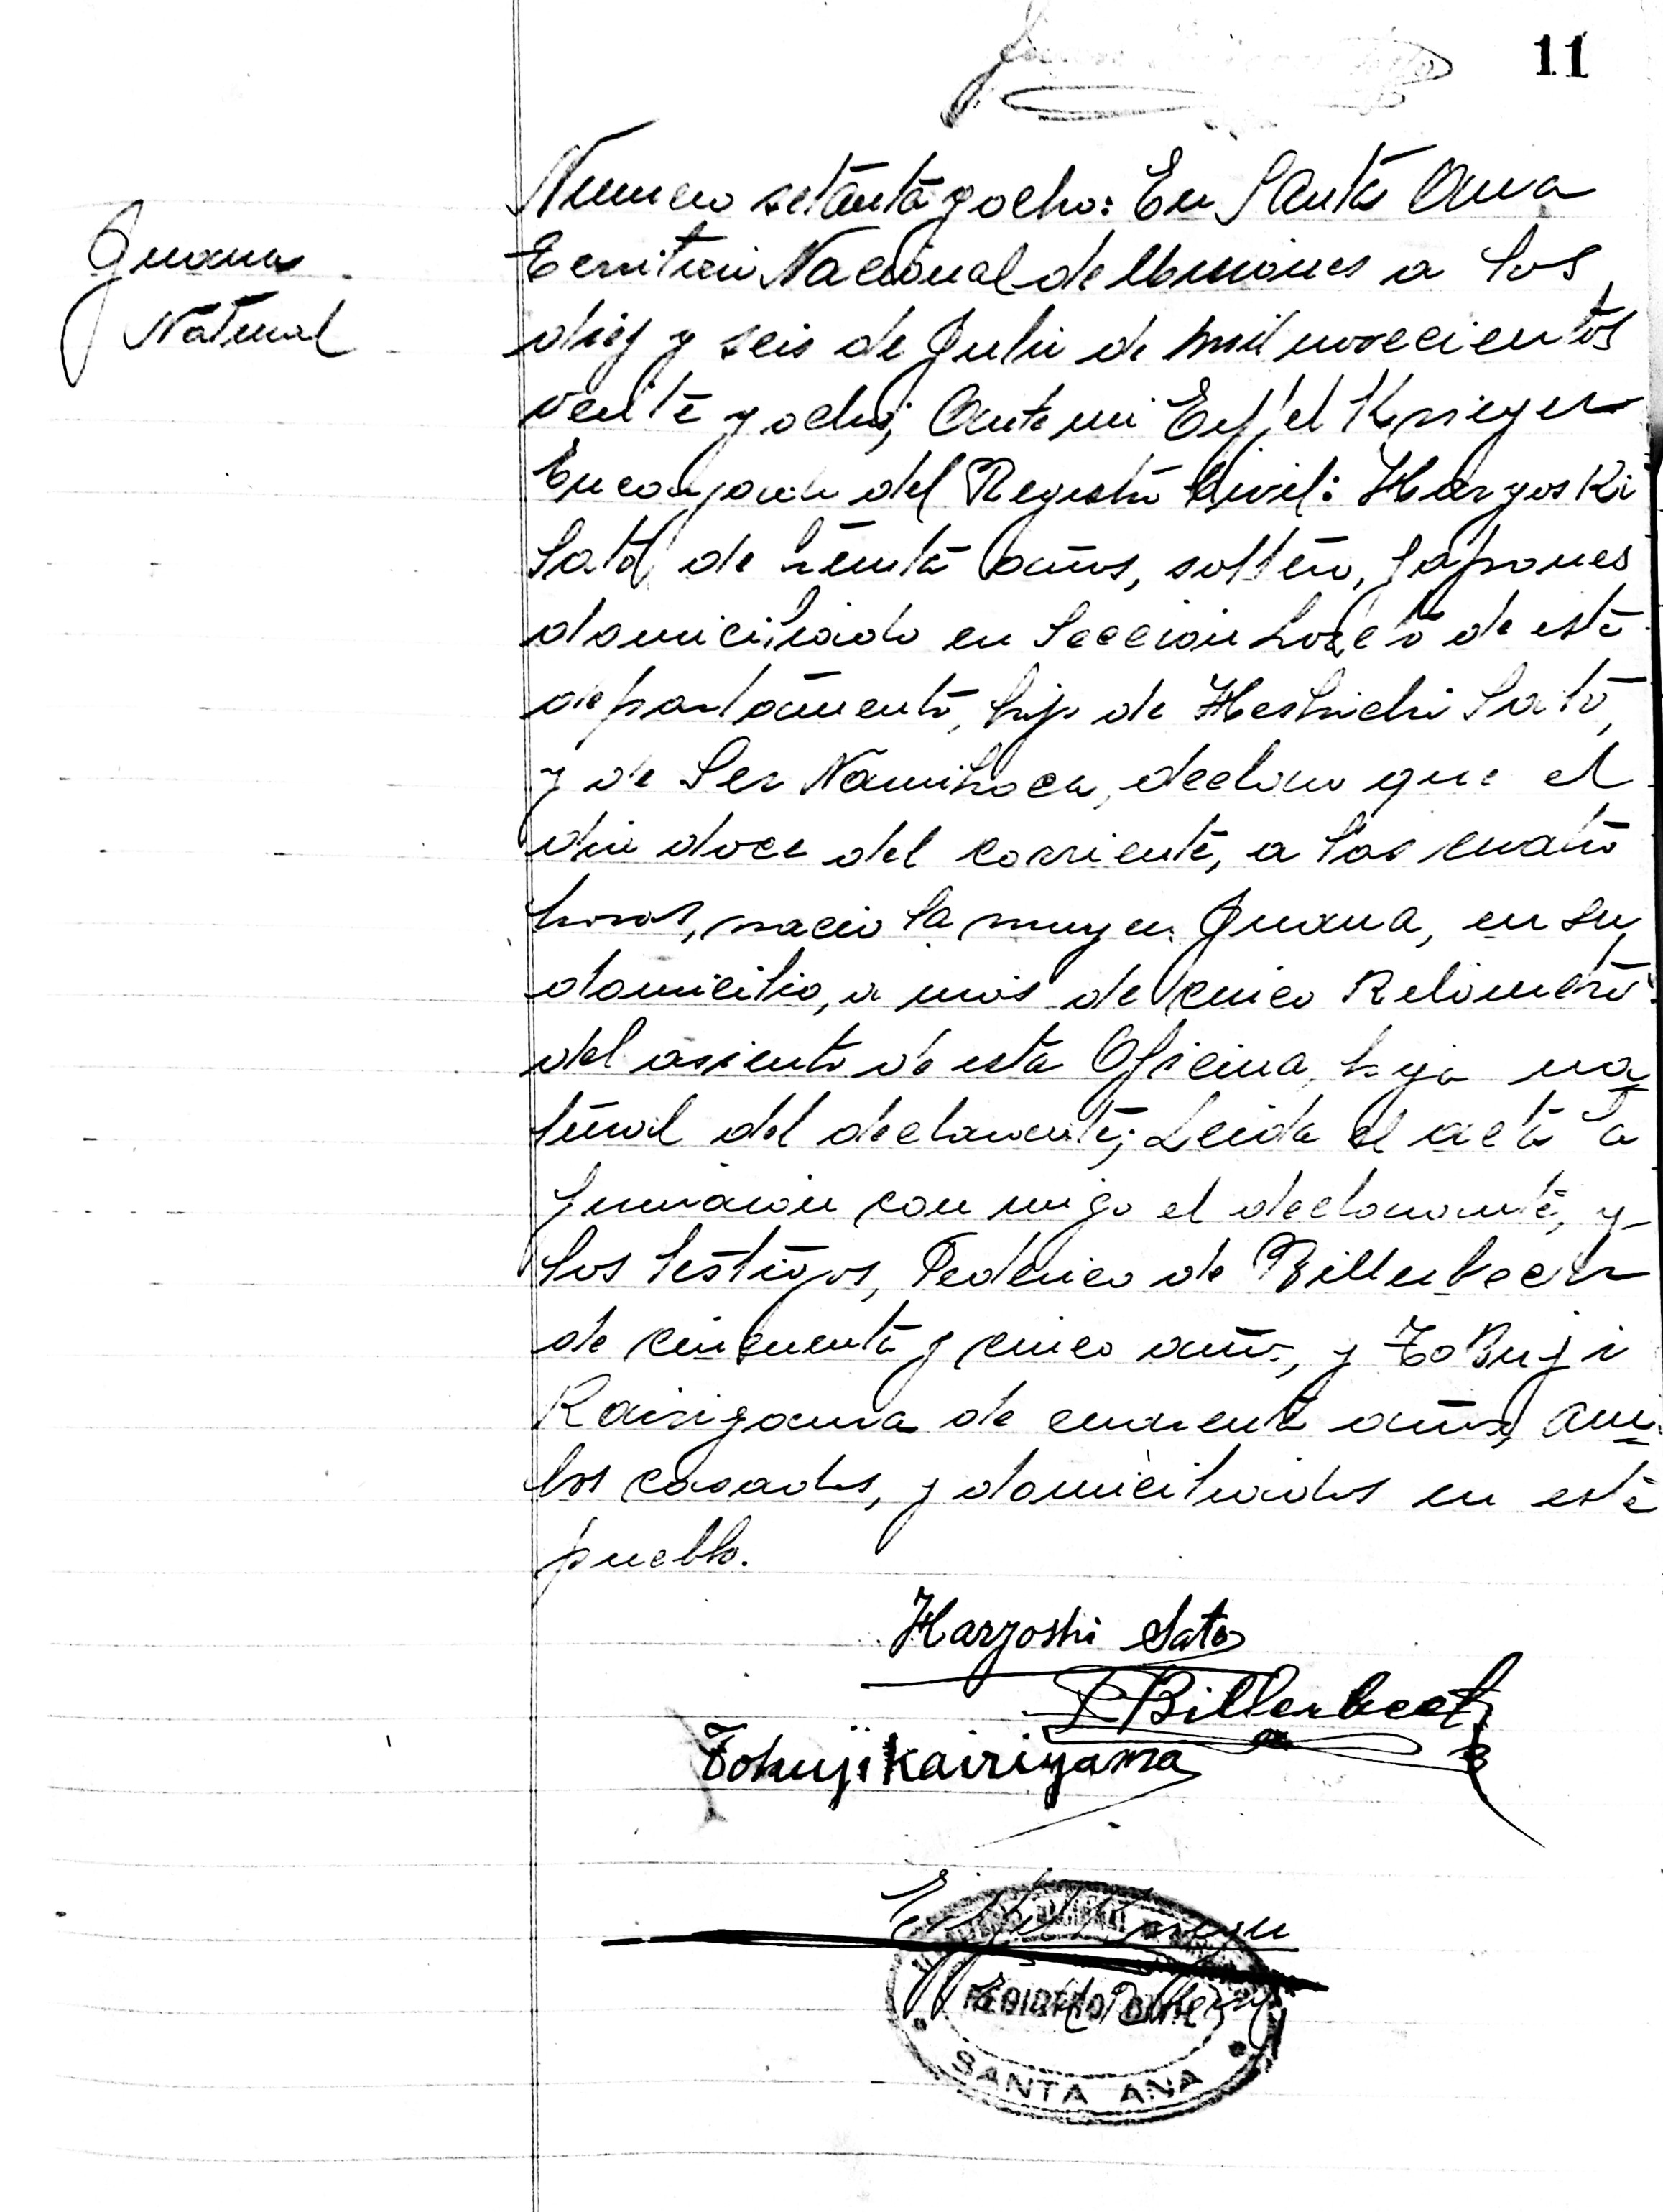 11
Juana
Natural
Numero setenta y ocho: En Santa Ana
Territorio Nacional de Misiones a los
diez y seis de Julio de mil novecientos
veinte y ocho; Ante mi Eiffel Krieger
Encargado del Registro Civil: Haryoski
Sato, de treinta años, soltero, Japones
domiciliado en Seccion Loreto de este
departamento, hijo de Heshichi Sato,
y de Ser Namihoca, declaro que el
dia doce del corriente, a las cuatro
horas, nacio la mujer Juana, en su
domicilio, a mas de cinco Kilometros
del asiento de esta Oficina, hija na
tural del declarante; Leida el acta la
firmaron conmigo el declarante, y
los testigos, Federico de Billerbeck
de cincuenta y cinco años, y Tokuji
Kairiyama de cuarenta años, am
bos casados, y domiciliados en este
pueblo.
Haryoshi Sato
F Billerbeck
Tokuji Kairiyama
Eiffel Krieger
REGISTRO CIVIL
SANTA ANA